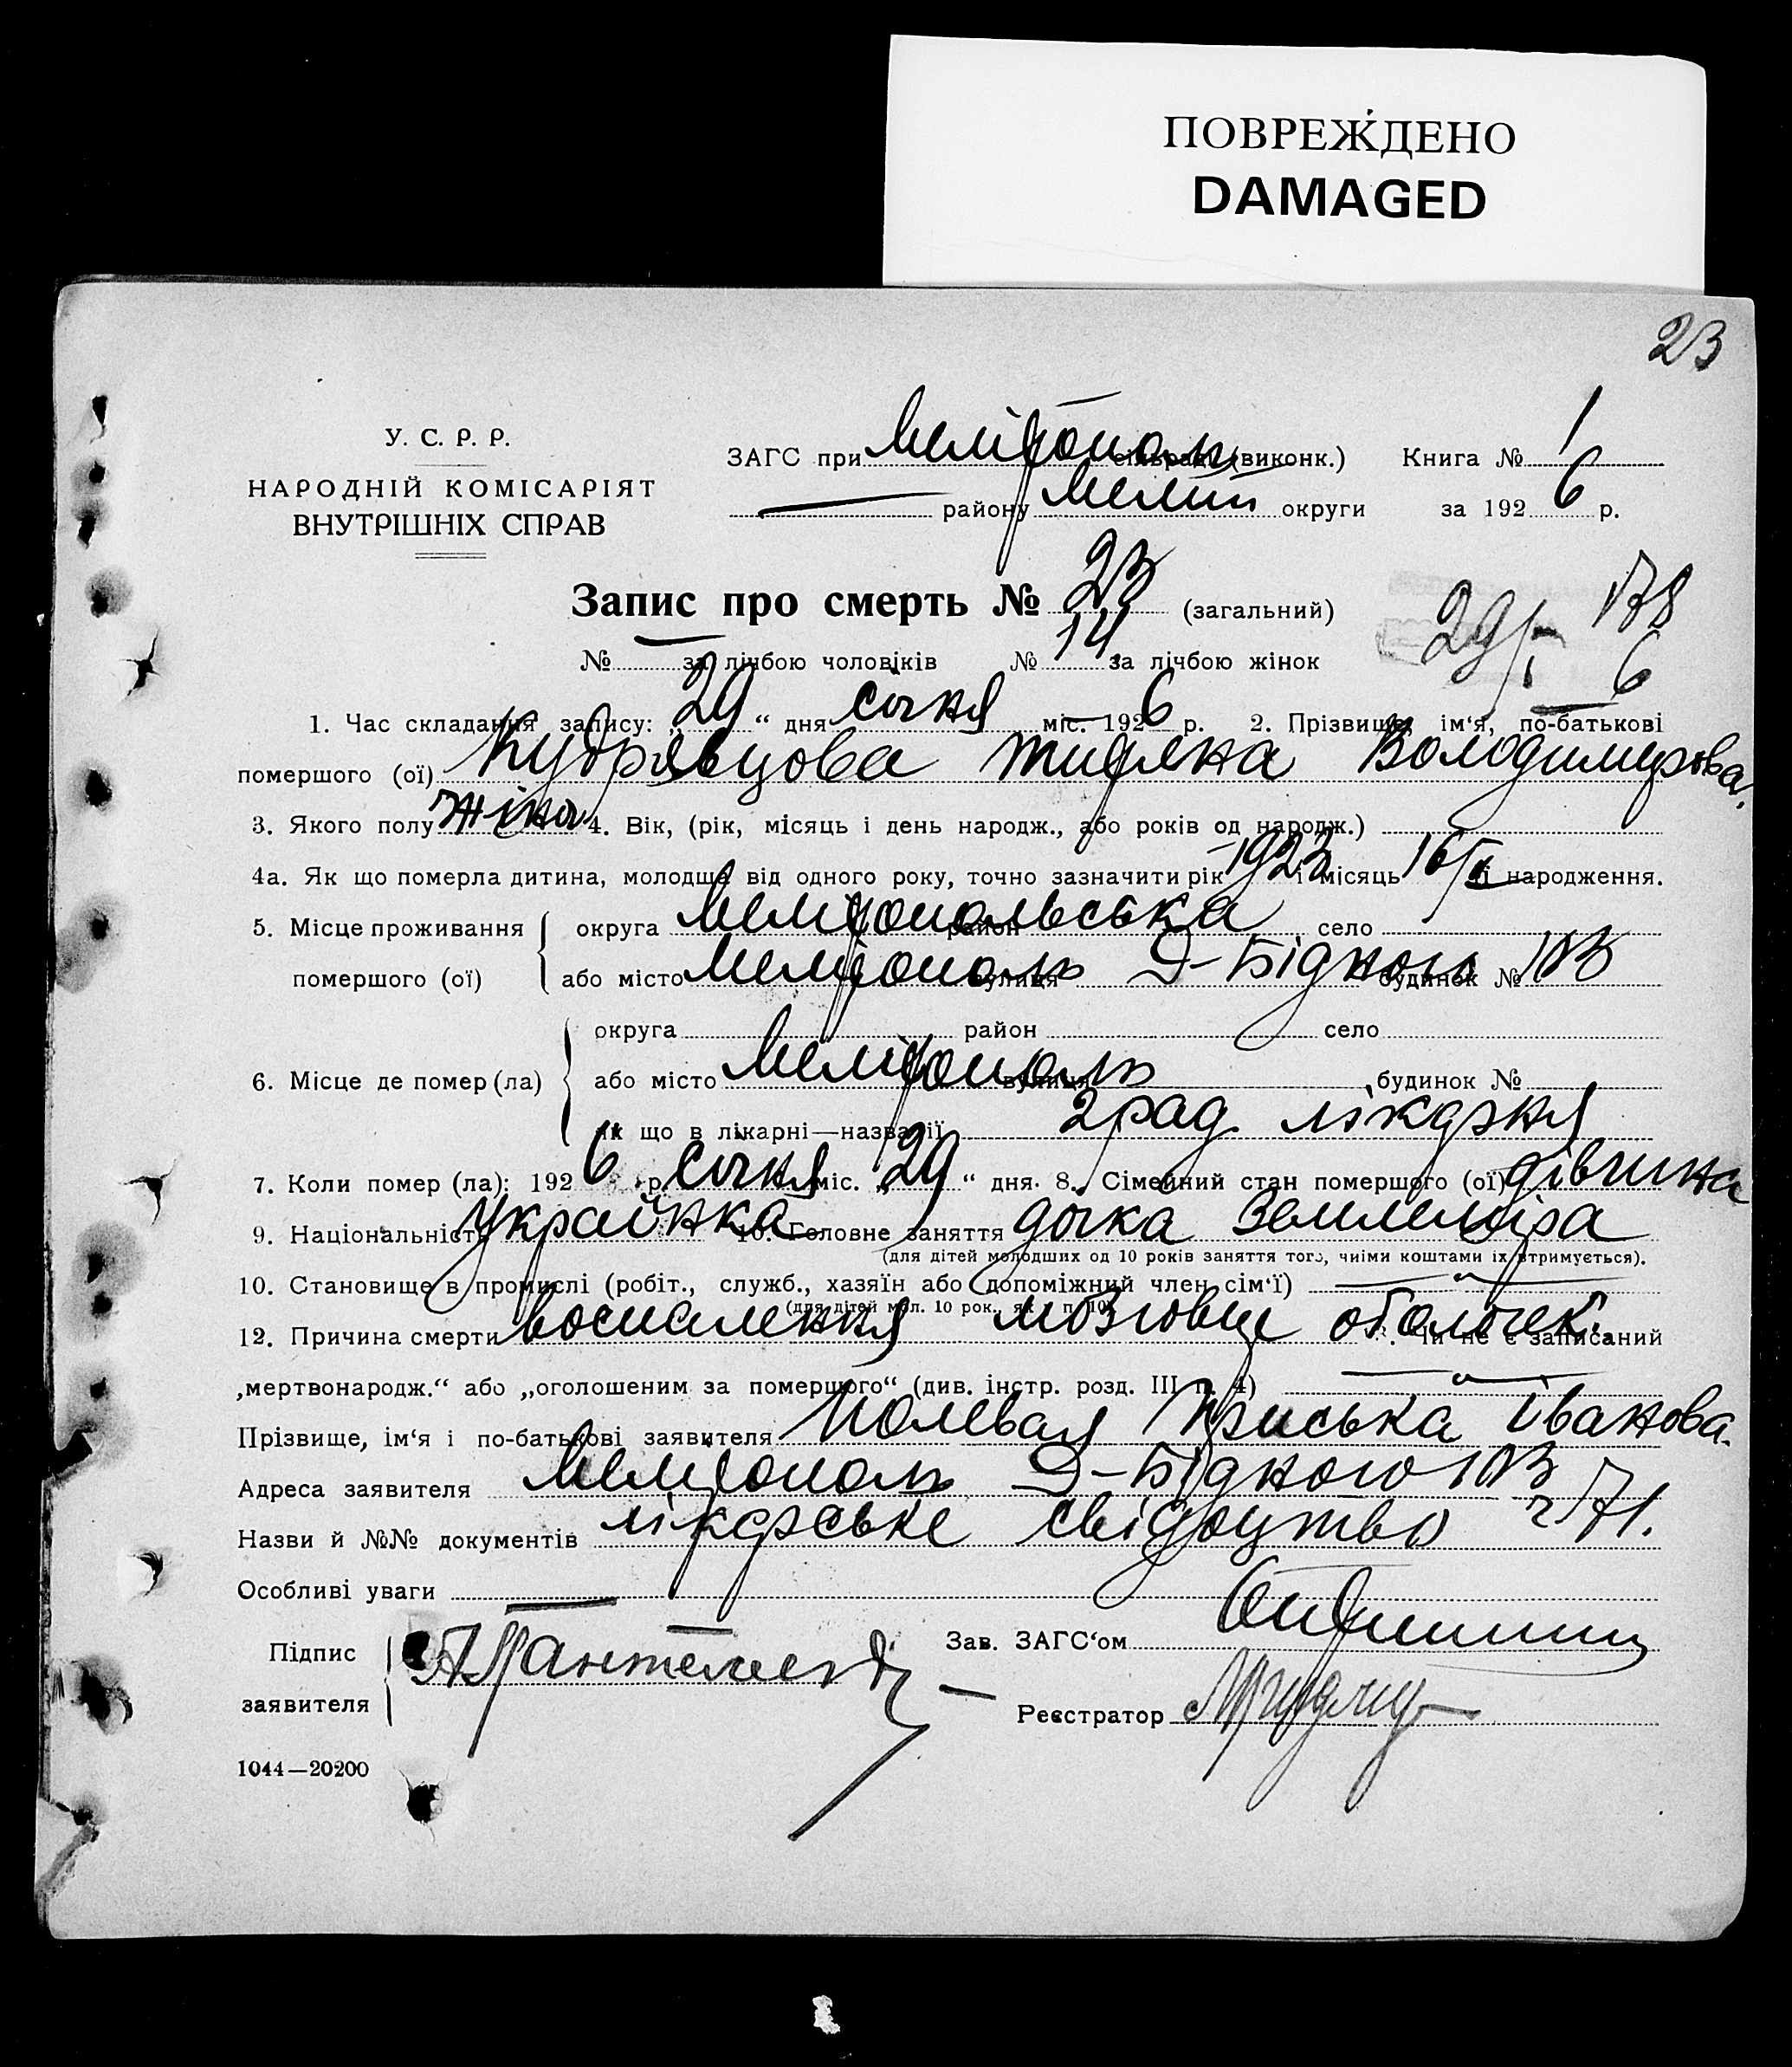 ПОВРЕЖДЕНО
DAMAGED
23
У. С. Р. Р.
НАРОДНІЙ КОМІСАРІЯТ
ВНУТРІШНІХ СПРАВ
ЗАГС при Мелітополь сільраді (виконк.) Книга № 1
району Меліт округи за 1926 р.
Запис про смерть № 23 (загальний)
№ за лічбою чоловіків № 14 за лічбою жінок
29/I 6
178
1. Час складання запису: „29“ дня січня міс. 1926 р. 2. Прізвище, ім‘я, по-батькові
помершого (ої) Кудрявцова Титяна Володимирова.
3. Якого полу жіноч 4. Вік, (рік, місяць і день народж., або років од народж.)
4а. Як що померла дитина, молодша від одного року, точно зазначити рік 1923 і місяць 16/ її народження.
5. Місце проживання помершого (ої) округа Мелітопольська район село
або місто Мелітополь вулиця Д-Бідного будинок № 103
6. Місце де помер (ла) округа район село
або місто Мелітополь вулиця будинок №
як що в лікарні—назва її град. лікарня
7. Коли помер (ла): 1926 р. січня міс. „29“ дня. 8. Сімейний стан помершого (ої) дівчина
9. Національність Українка 10. Головне заняття дочка Землеміра
(для дітей молодших од 10 років заняття того, чиїми коштами їх утримується).
10. Становище в промислі (робіт., служб., хазяїн або допоміжний член сім‘ї)
(для дітей мол. 10 рок., як і п. 10)
12. Причина смерти воспалення мозговые оболочек. 13. Чи не є записаний
„мертвонародж.“ або „оголошеним за помершого“ (див. інстр. розд. III п. 4)
Прізвище, ім‘я і по-батькові заявителя Полевая Приська Іванова.
Адреса заявителя Мелітополь Д-Бідного 103
Назви й №№ документів лікарське свідоцтво 71.
Особливі уваги
Підпис заявителя
Зав. ЗАГС‘ом
Реєстратор
1044—20200